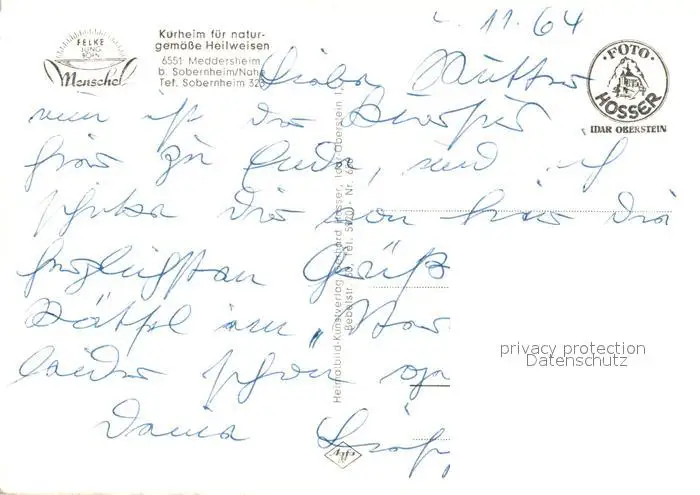 FELKE
JUNG
BORN
Menschel
Kurheim für natur-
gemäße Heilweisen
6551 Meddersheim
b. Sobernheim/Nahe
Tel. Sobernheim 323
11.64
FOTO
HOSSER
IDAR OBERSTEIN
Liebe Mutter
nun ist der Besuch
hier zu Ende, und ich
schicke Dir von hier die
herzlichsten Grüß
Rätsel im
leider schon
Deine
Heimatbild-Kunstverlag Hosser, Idar-Oberstein
privacy protection
Datenschutz